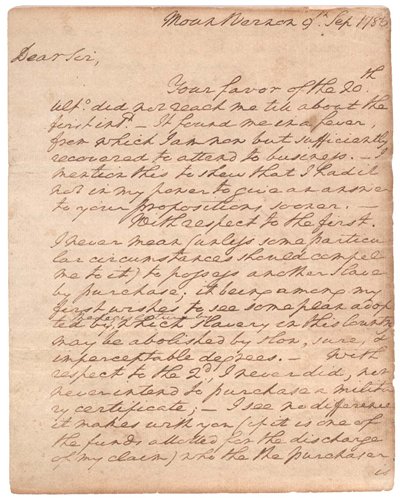 Mount Vernon 9th Sep 1786
Dear Sir,
Your favor of the 20th
ulto. did not reach me till about the
first inst. – It found me in a fever,
from which I am now but sufficiently
recovered to attend to business. – I
mention this to shew that I had it
not in my power to give an answer
to your propositions sooner. –
With respect to the first.
I never mean (unless some particu-
lar circumstances should compel
me to it) to possess another slave
by purchase; it being among my
first wishes to see some plan adop-
ted by which slavery in this Country
may be abolished by slow, sure, &
imperceptable degrees. – With
respect to the 2d, I never did, nor
never intend to purchase a milita-
ry certificate; – I see no difference
it makes with you (if it is one of
the funds allotted for the discharge
of my claim) who the the purchaser
is